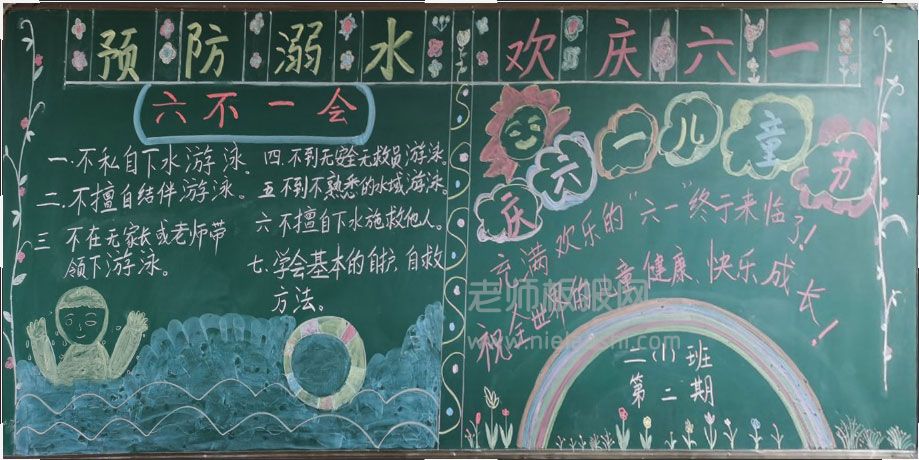 预防溺水
六不一会
一.不私自下水游泳.
二.不擅自结伴游泳。
三 不在无家长或老师带
领下游泳。
四.不到无安全无救员游泳.
五不到不熟悉的水域游泳。
六不擅自下水施救他人。
七.学会基本的自护.自救
方法。
欢庆六一
庆六一儿童节
充满欢乐的“六一”终于来临了!
祝全世界的儿童健康、快乐成长!
二(1)班
第二期
老师板报网